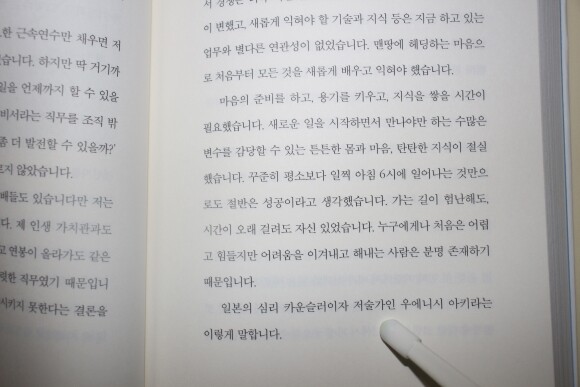 한 근속연수만 채우면 저
습니다. 하지만 딱 거기까
일을 언제까지 할 수 있을
비서라는 직무를 조직 밖
좀 더 발전할 수 있을까?'
르지 않았습니다.
배들도 있습니다만 저는
다. 제 인생 가치관과도
고 연봉이 올라가도 같은
렷한 직무였기 때문입니
시키지 못한다는 결론을
이 변했고, 새롭게 익혀야 할 기술과 지식 등은 지금 하고 있는
업무와 별다른 연관성이 없었습니다. 맨땅에 헤딩하는 마음으
로 처음부터 모든 것을 새롭게 배우고 익혀야 했습니다.
마음의 준비를 하고, 용기를 키우고, 지식을 쌓을 시간이
필요했습니다. 새로운 일을 시작하면서 만나야만 하는 수많은
변수를 감당할 수 있는 튼튼한 몸과 마음, 탄탄한 지식이 절실
했습니다. 꾸준히 평소보다 일찍 아침 6시에 일어나는 것만으
로도 절반은 성공이라고 생각했습니다. 가는 길이 험난해도,
시간이 오래 걸려도 자신 있었습니다. 누구에게나 처음은 어렵
고 힘들지만 어려움을 이겨내고 해내는 사람은 분명 존재하기
때문입니다.
일본의 심리 카운슬러이자 저술가인 우에니시 아키라는
이렇게 말합니다.